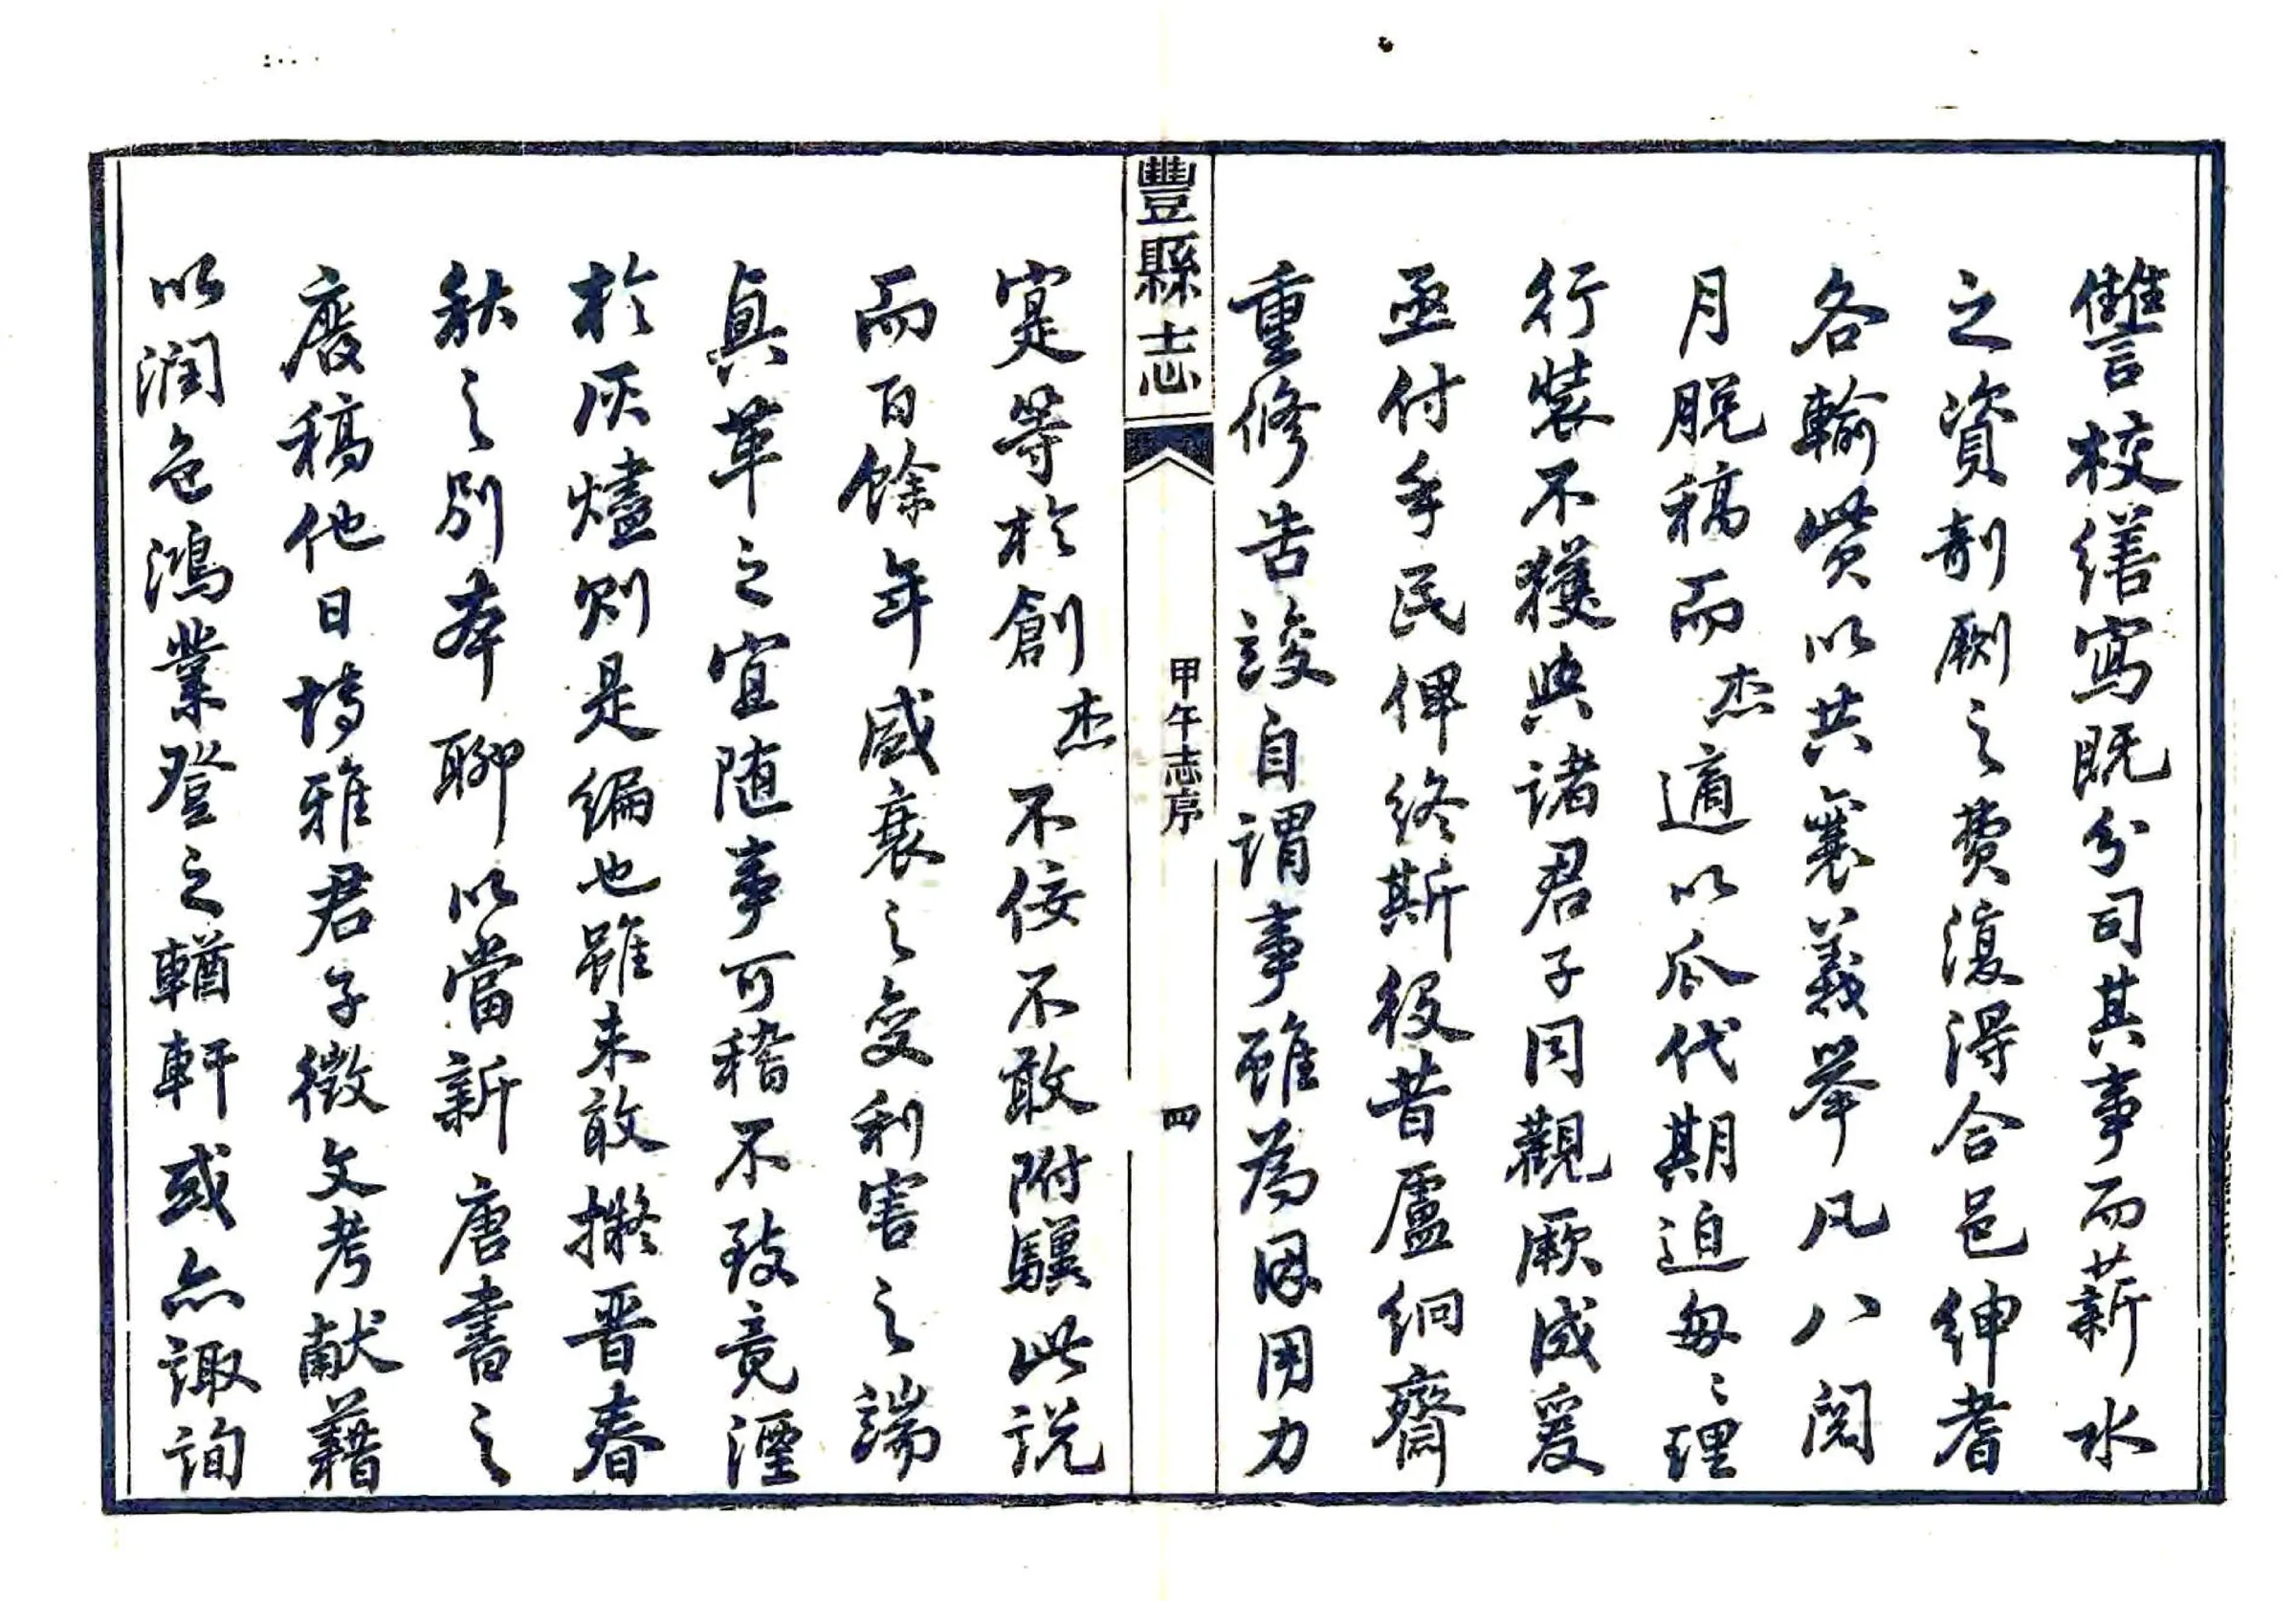 讐校繕寫既分司其事而薪水
之資剞劂之費復得合邑紳耆
各輸貲以共襄義舉凡八閱
月脫稿而杰適以瓜代期迫匆匆理
行裝不獲與諸君子同觀厥成爰
亟付手民俾終斯役昔盧絅齋
重修告竣自謂事雖為因用力
豐縣志
甲午志序
四
寔等於創杰不佞不敢附驥此說
而百餘年盛衰之變利害之端
興革之宜随事可稽不致竟湮
於灰燼則是編也雖未敢擬晉春
秋之別本聊以當新唐書之
廢稿他日博雅君子徵文考獻藉
以潤色鴻業登之輶軒或亦諏詢